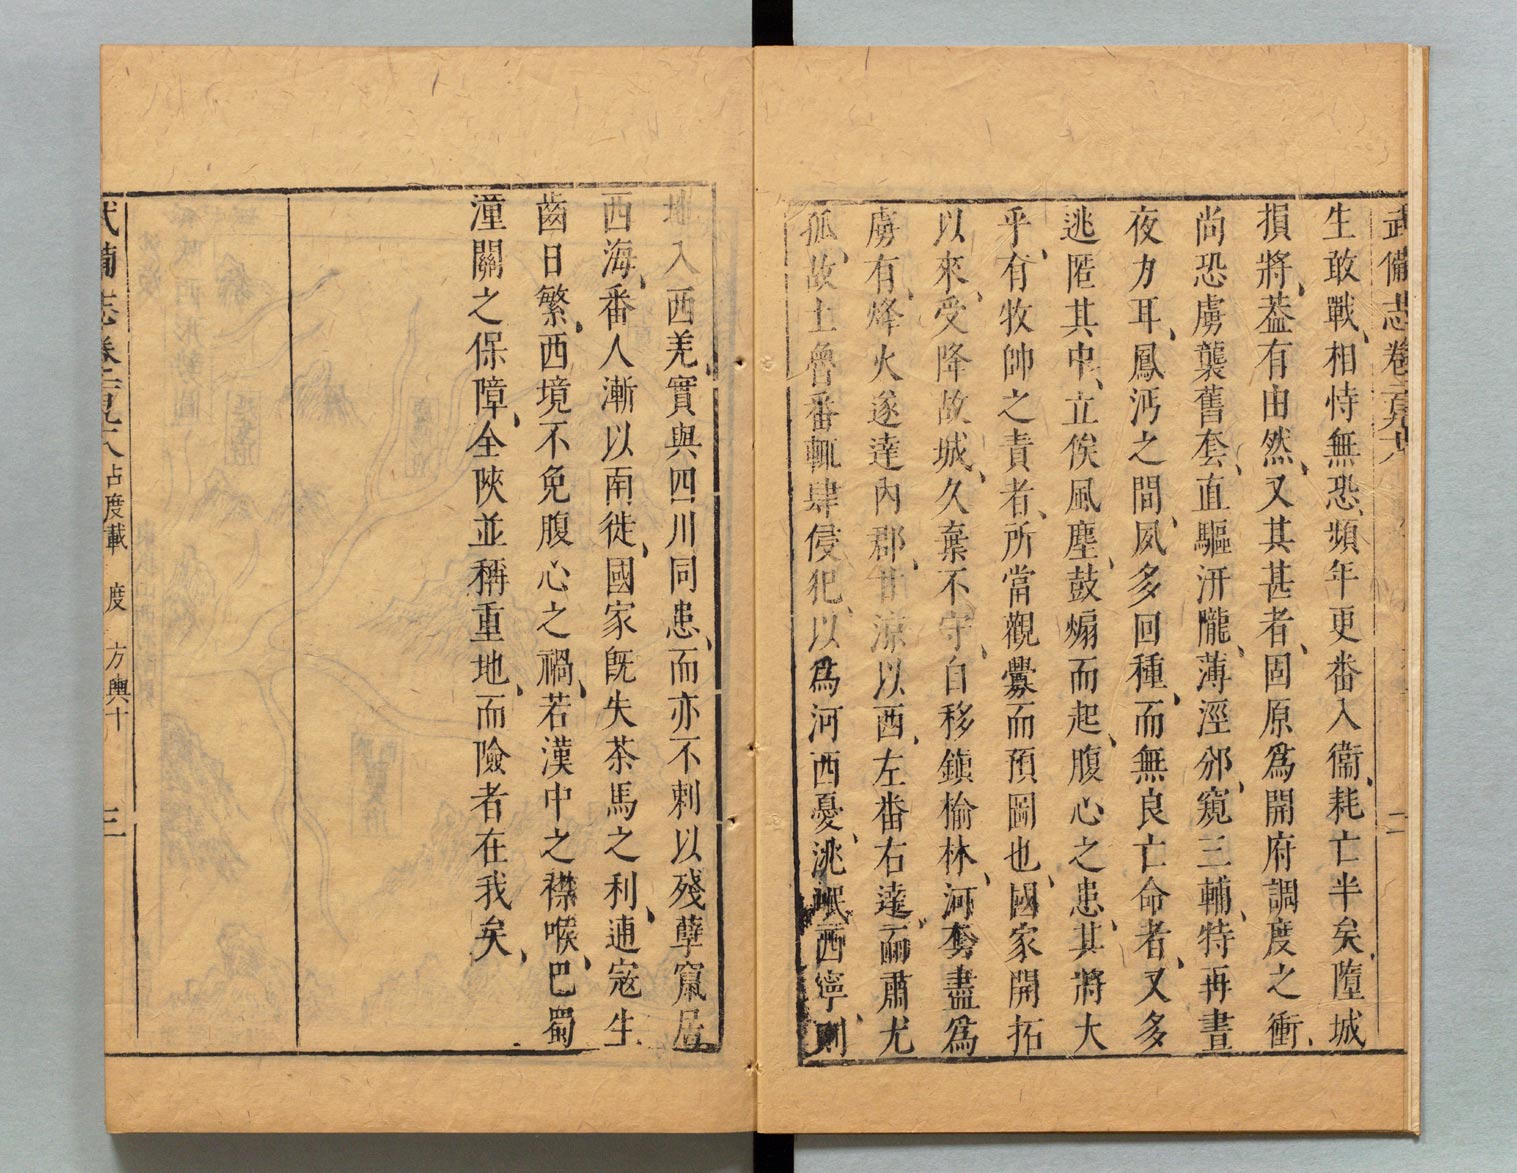 生敢戰、相恃無恐、頻年更番入衞、耗亡半矣、隳城
損將、葢有由然、又其甚者、固原爲開府調度之衝、
尚恐虜襲舊套、直驅汧隴、薄涇邠、窺三輔、特再晝
夜力耳、鳳沔之間、夙多回種、而無良亡命者、又多
逃匿其中、立俟風塵、鼓煽而起、腹心之患、其將大
乎、有牧帥之責者、所當觀釁而預圖也、國家開拓
以來、受降故城、久棄不守、自移鎮榆林、河套盡爲
虜有、烽火遂達內郡、甘涼以西、左番右達、而肅尤
孤、故土魯番輒肆侵犯、以爲河西憂、洮岷西寧、則
地入西羌、實與四川同患、而亦不剌以殘孽竄居
西海、番人漸以南徙、國家旣失茶馬之利、逋寇生
齒日繁、西境不免腹心之禍、若漢中之襟喉、巴蜀
潼關之保障、全陝並稱重地、而險者在我矣、
武備志卷 占度載 度 方輿十 三